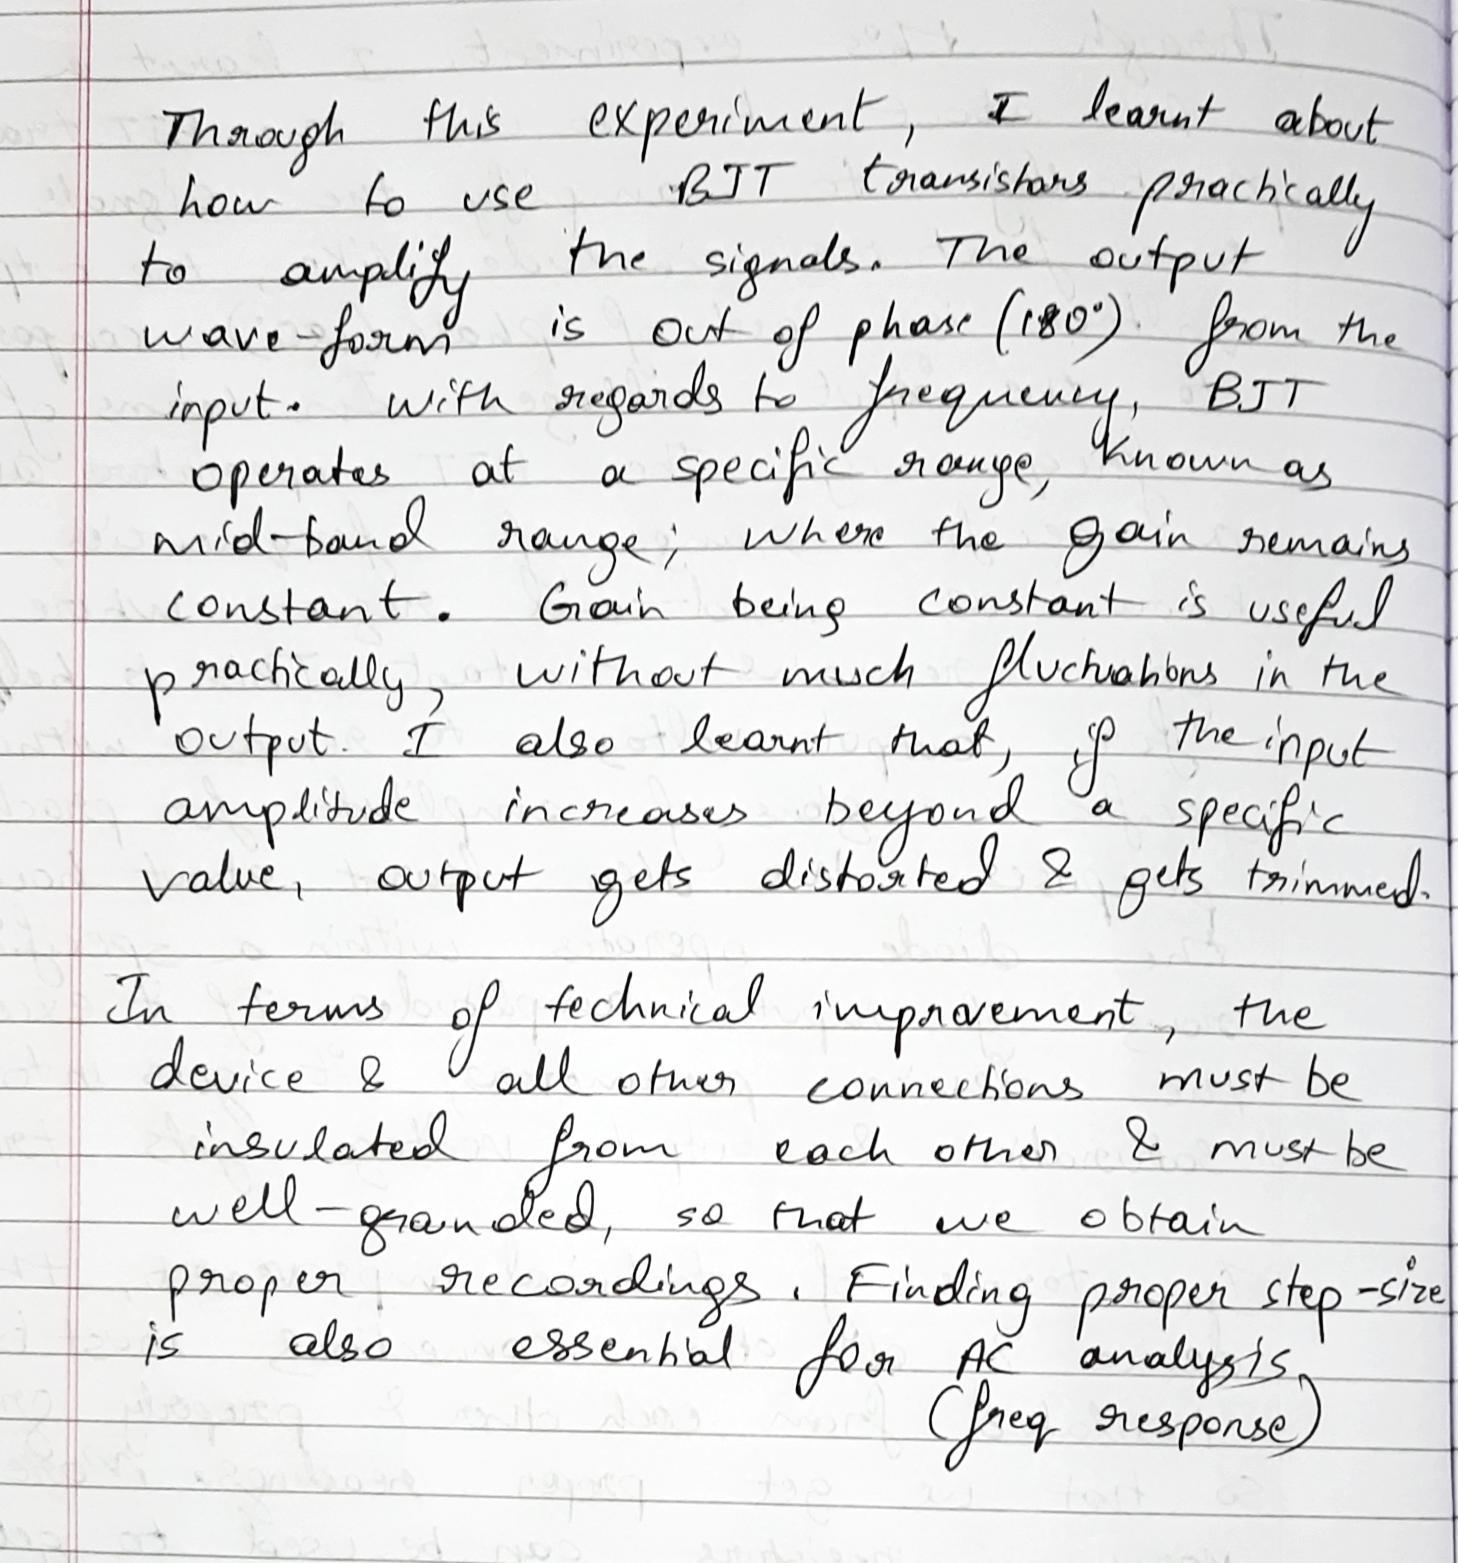 Through this experiment, I learnt about
how to use BJT transistors practically
to amplify the signals. The output
wave-form is out of phase (180°). from the
input. With regards to frequency, BJT
operates at a specific range, known as
mid-band range; where the gain remains
constant. Gain being constant is useful
practically, without much fluctuations in the
output. I also learnt that, if the input
amplitude increases beyond a specific
value, output gets distorted & gets trimmed.
In terms of technical improvement, the
device & all other connections must be
insulated from each other & must be
well-grounded, so that we obtain
proper recordings. Finding proper step-size
is also essential for AC analysis.
(freq response)